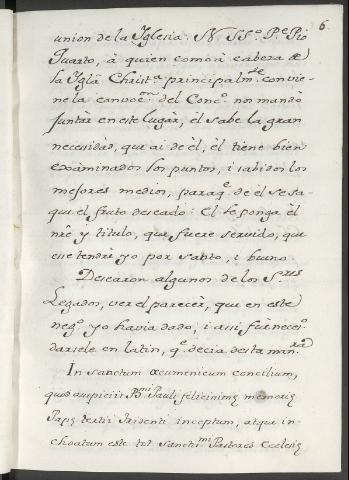 6
union de la Iglesia. N. SS.º P.e Pio
Quarto, à quien como à cabeza de
la Iglã Christ.a principalm.te convie-
ne la convoc.on del Conc.º nos mandò
juntàr en este lugàr, él sabe la gran
necesidad, que ai de èl, èl tiene bien
exâminados los puntos, i sabidos los
mejores medios, paraq.e de él se sa-
que el fruto deseado: El le ponga èl
nrẽ y titulo, que fuere servido, que
esse tendrè yo por santo, i bueno.
Desearon algunos de los S.res
Legados, ver el parecèr, que en este
neg.º yo havia dado, i assi fuè neces.º
darsele en latin, q.e decia desta man.ra
In sanctum œcumenicum concilium,
quod auspiciis B.mi Pauli felicissimę memorię
Papę tertii Tridenti inceptum, atque in-
choatum este tot sanctis.mi Pastores Ecclesię